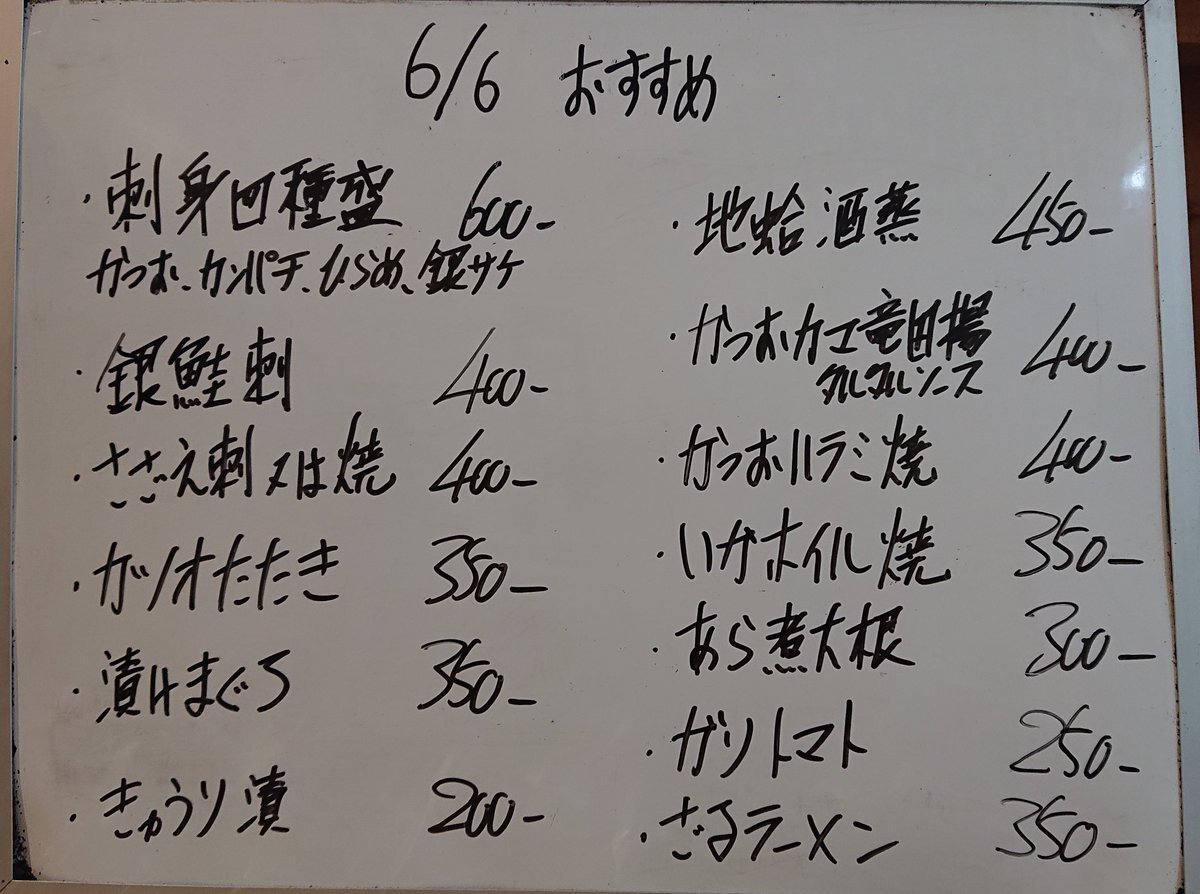 6/6 おすすめ
・刺身四種盛 600-
かつお、カンパチ、ひらめ、銀サケ
・銀鮭刺 400-
・さざえ刺又は焼 400-
・ガツオたたき 350-
・漬けまぐろ 350-
・きゅうり漬 200-
・地蛤酒蒸 450-
・かつおカマ竜田揚 400-
タルタルソース
・かつおハラミ焼 400-
・いかホイル焼 350-
・あら煮大根 300-
・ガリトマト 250-
・ざるラーメン 350-